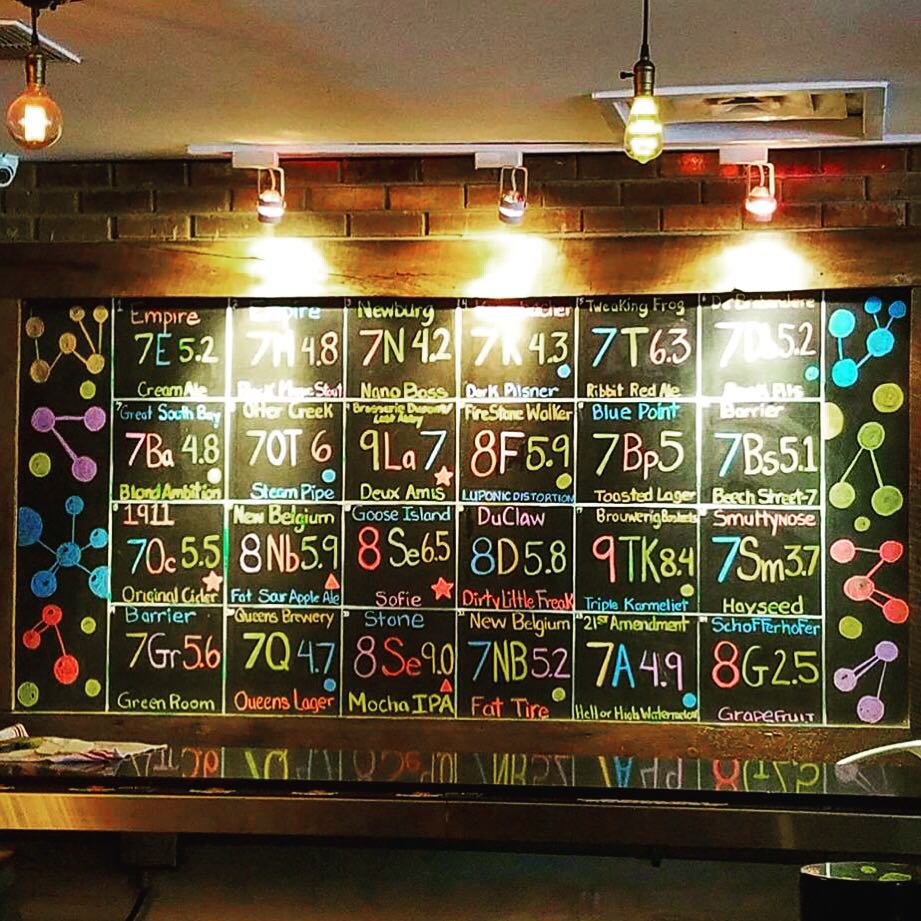 Empire
7E 5.2
Cream Ale
Empire
4.8
Newburg
7N 4.2
Nano Boss
7K 4.3
Dark Pilsner
Tweaking Frog
7T 6.3
Ribbit Red Ale
5.2
Great South Bay
7Ba 4.8
Blond Ambition
Otter Creek
7OT 6
Steam Pipe
9La 7
Deux Amis
FireStone Walker
8F 5.9
LUPONIC DISTORTION
Blue Point
7Bp 5
Toasted Lager
Barrier
7Bs 5.1
Beech Street-7
1911
7Oc 5.5
Original Cider
New Belgium
8Nb 5.9
Fat Sour Apple Ale
Goose Island
8Se 6.5
Sofie
DuClaw
8D 5.8
Dirty Little Freak
9TK 8.4
Triple Karmeliet
Smuttynose
7Sm 3.7
Hayseed
Barrier
7Gr 5.6
Green Room
Queens Brewery
7Q 4.7
Queens Lager
Stone
8Se 9.0
Mocha IPA
New Belgium
7NB 5.2
Fat Tire
21st Amendment
7A 4.9
Hell or High Watermelon
Schofferhofer
8G 2.5
Grapefruit